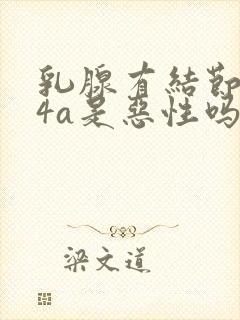 乳腺有結節
4a是惡性吗
梁文道